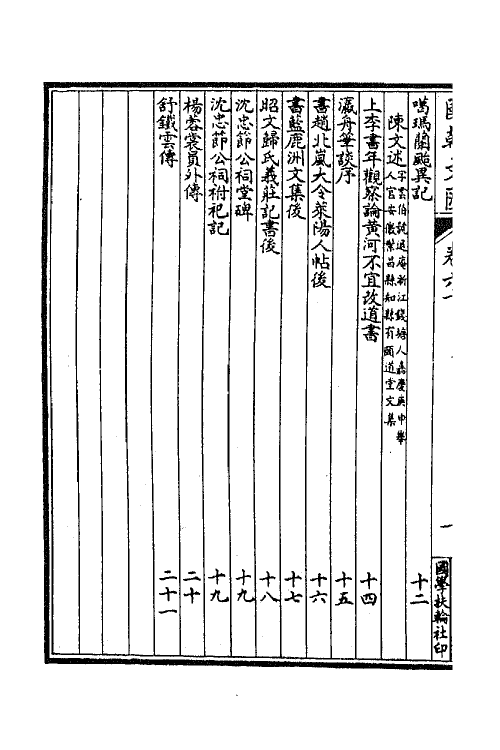 國朝文匯 卷六十 一 國學扶輪社印
噶瑪蘭颱異記 十二
陳文述 字雲伯號退庵浙江錢塘人嘉慶庚申舉人官安徽繁昌縣知縣有頤道堂文集
上李書年觀察論黃河不宜改道書 十四
瀛舟筆談序 十五
書趙北嵐大令萊陽人帖後 十六
書藍鹿洲文集後 十七
昭文歸氏義莊記書後 十八
沈忠節公祠堂碑 十九
沈忠節公祠祔祀記 十九
楊蓉裳員外傳 二十
舒鐵雲傳 二十一